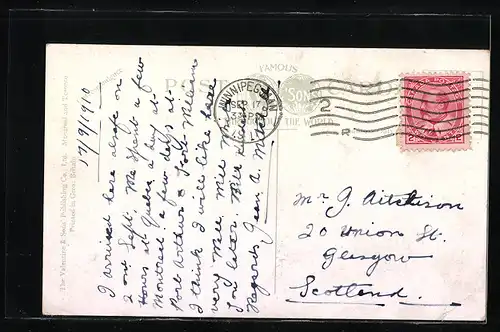 17/9/1910
I arrived here alsate on
2 one Sept. We spent a few
Hours at Quebec a day at
Montreal a few days at
Port Arthur & Fort William
I think I will like here
very Well. Will
later.
Regards, Jean A.
The Valentine & Sons' Publishing Co., Ltd. Montreal and Toronto
Printed in Great Britain.
POST CARD
FAMOUS
THE WORLD
WINNIPEG MAN
SEP 17
2
Mr J. Aitchison
20 Union St.
Glasgow
Scotland.